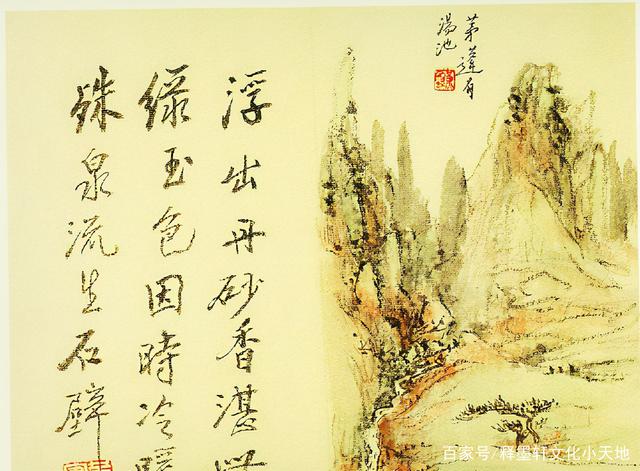 茅蓬有
湯池
浮出丹砂香湛
緑玉色因時冷暖
殊泉流生石壁
百家号/释墨轩文化小天地